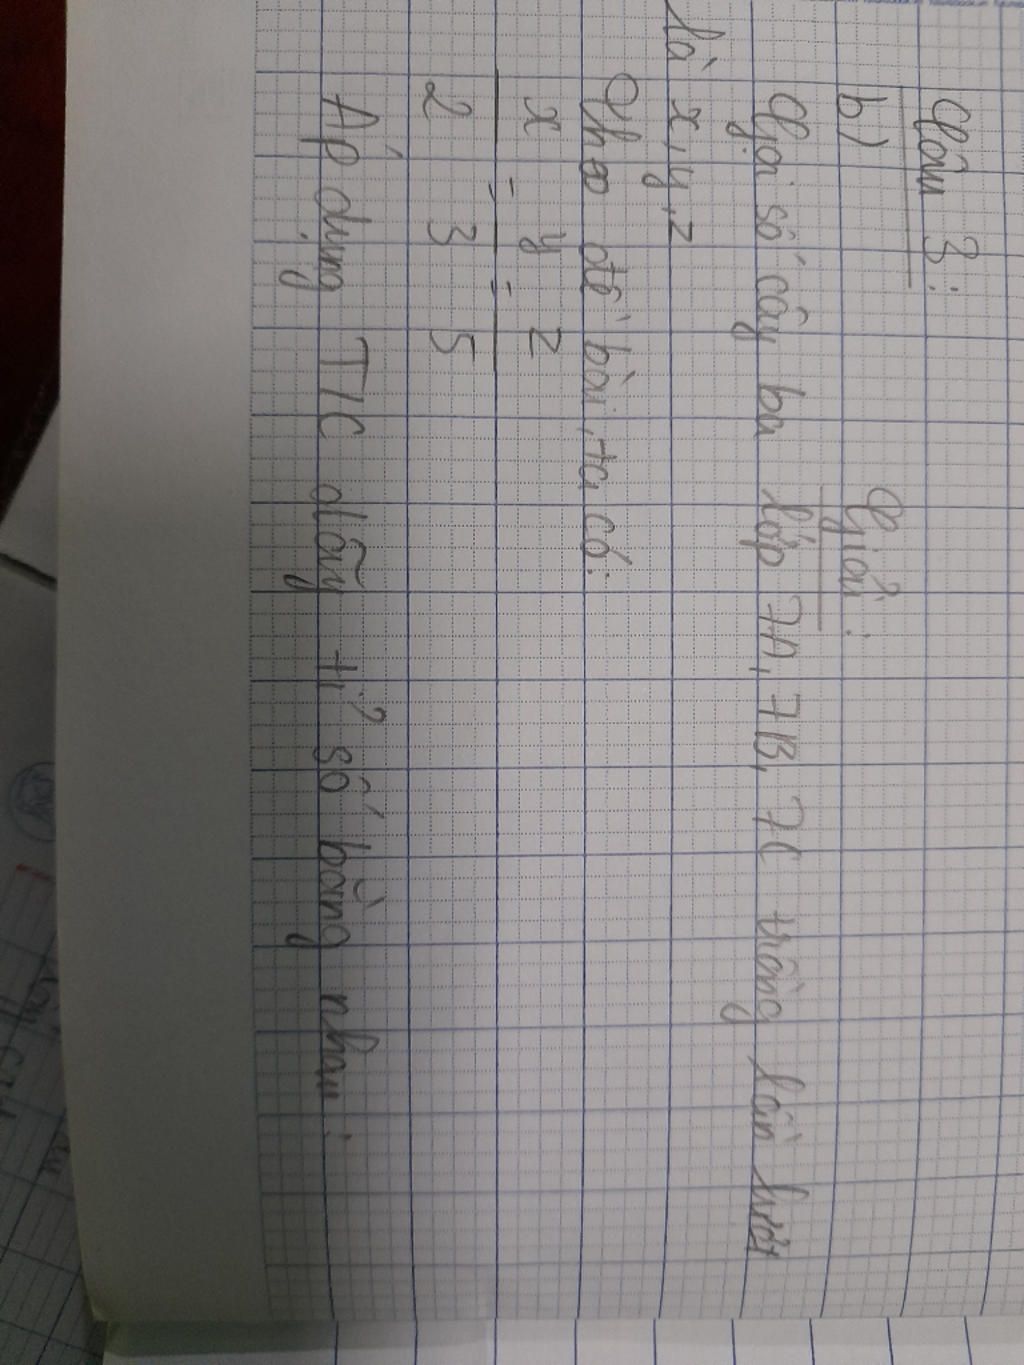 Câu 3:
b)
Giải:
Gọi số cây ba lớp 7A, 7B, 7C trồng lần lượt
là x, y, z
Theo đề bài, ta có:
x/2 = y/3 = z/5
Áp dụng T/C dãy tỉ số bằng nhau: